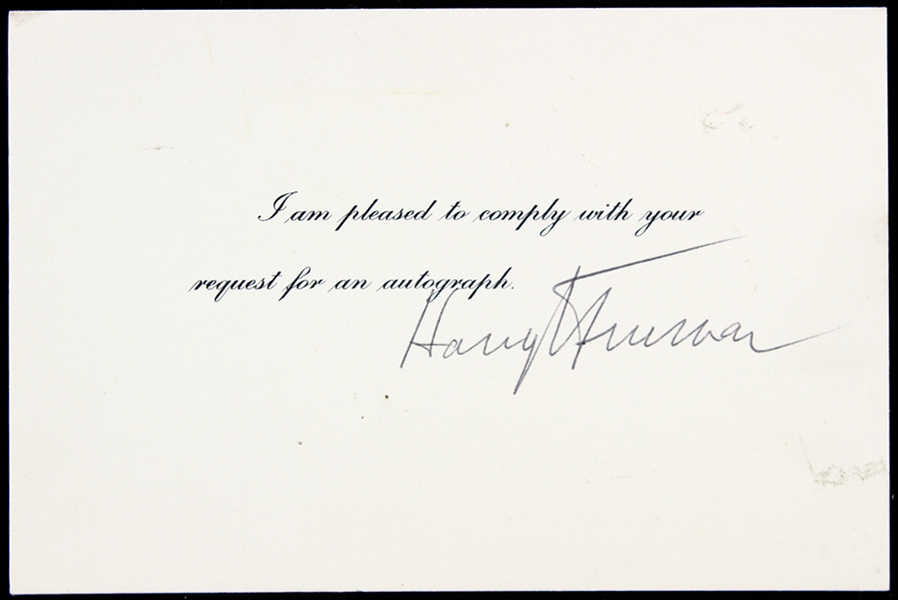 I am pleased to comply with your
request for an autograph.
Harry S Truman